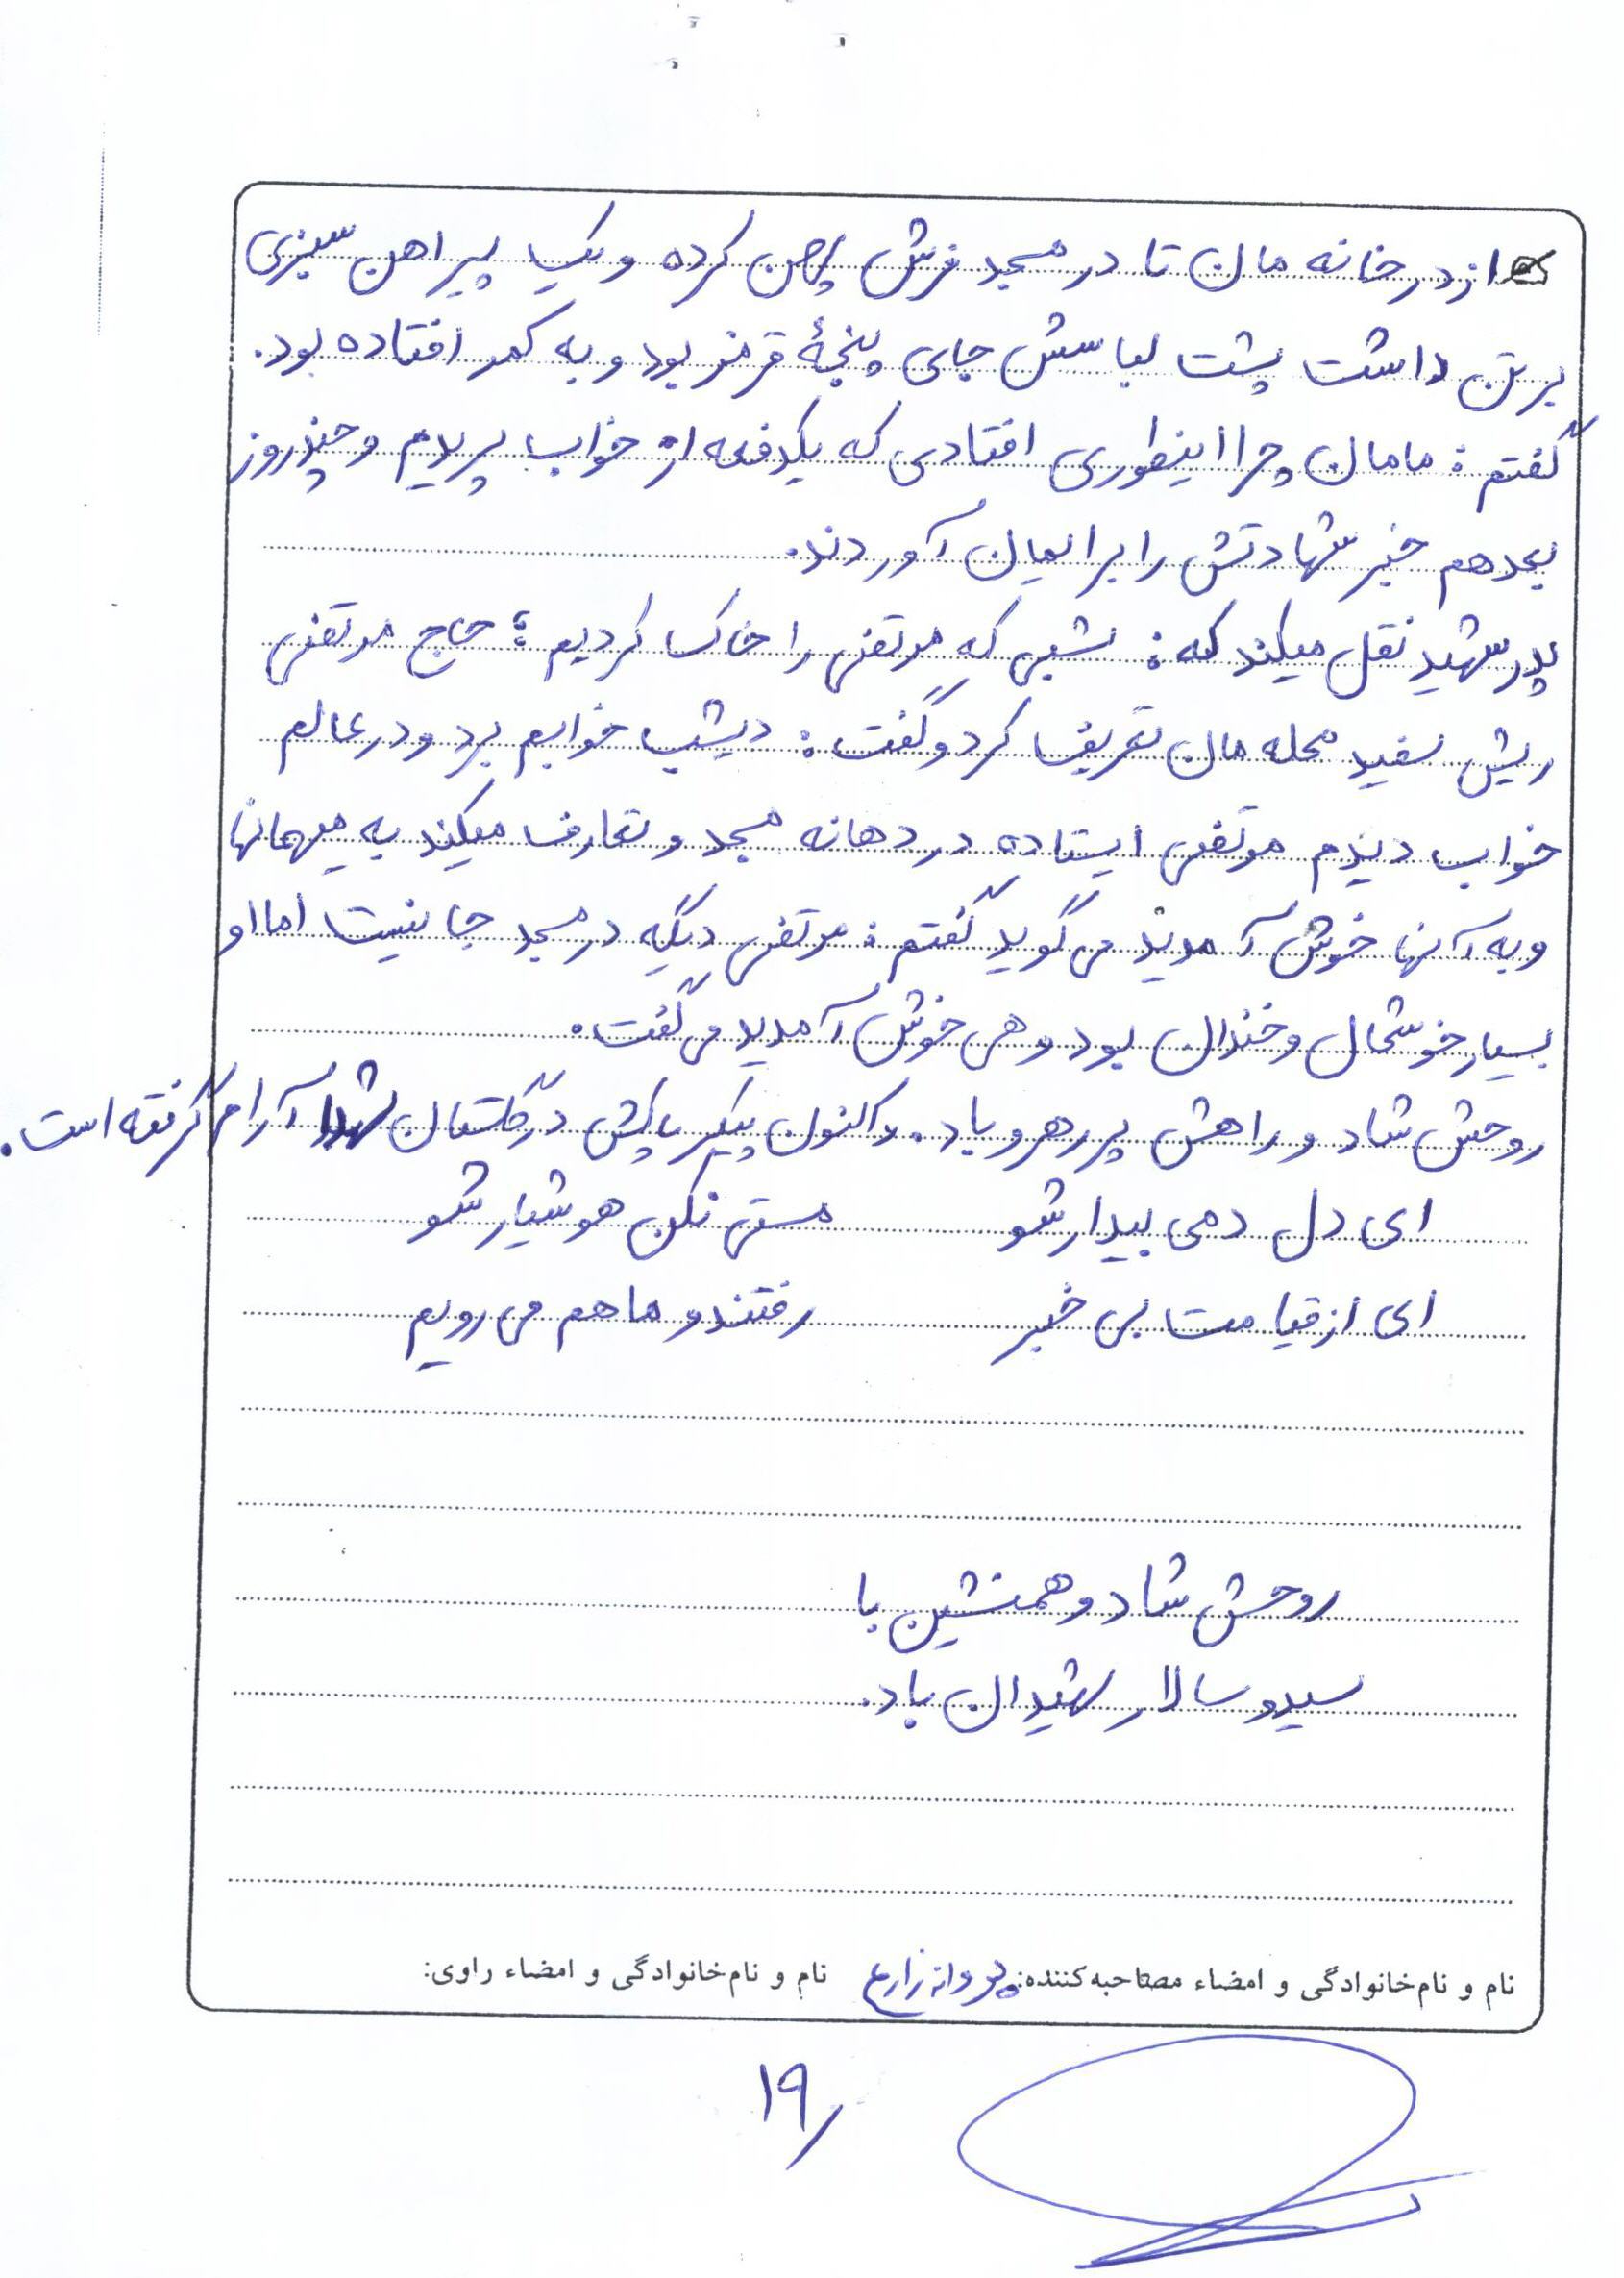 از در خانه مان تا در مسجد فرش پهن کرده و یک پیراهن سبزی
بر تن داشت پشت لباسش جای پنجهٔ قرمز بود و به کمر افتاده بود.
گفتم: مامان چرا اینطوری افتادی که یکدفعه از خواب پریدم و چند روز
بعد هم خبر شهادتش را برایمان آوردند.
پدر شهید نقل میکند که: شبی که مرتضی را خاک کردیم؛ حاج مرتضی
ریش سفید محله مان تعریف کرد و گفت: دیشب خوابم برد و در عالم
خواب دیدم مرتضی ایستاده در دهانه مسجد و تعارف میکند به میهمانها
و به آنها خوش آمدید می گوید گفتم: مرتضی دیگه در مسجد جا نیست اما او
بسیار خوشحال و خندان بود و هی خوش آمدید می گفت.
روحش شاد و راهش پر رهرو باد. و اکنون پیکر پاکش در گلستان شهدا آرام گرفته است.
ای دل دمی بیدار شو مستی نکن هوشیار شو
ای از قیامت بی خبر رفتند و ما هم می رویم
روحش شاد و همنشین با
سید و سالار شهیدان باد.
نام و نام‌خانوادگی و امضاء مصاحبه‌کننده: پروانه زارع نام و نام‌خانوادگی و امضاء راوی:
۱۹